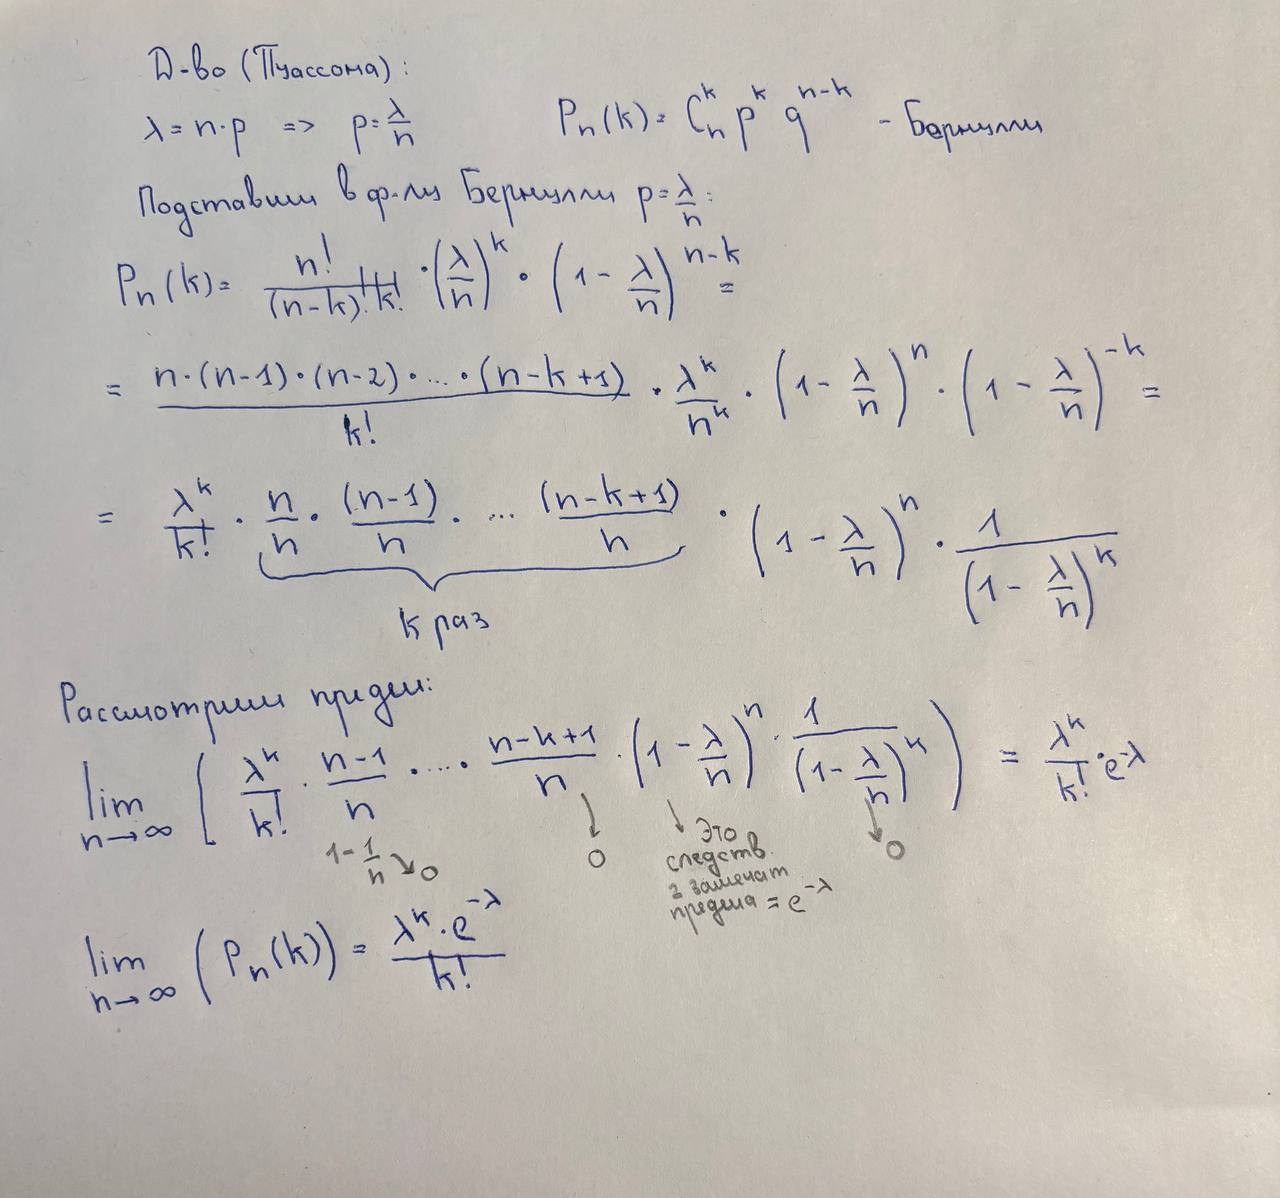 Д-во (Пуассона):
λ = n·p => p = λ/n    Pn(k) = C_n^k p^k q^(n-k) - Бернулли
Подставим в ф-лу Бернулли p = λ/n:
Pn(k) = n!/((n-k)! k!) · (λ/n)^k · (1 - λ/n)^(n-k) =
= n·(n-1)·(n-2)·...·(n-k+1)/k! · λ^k/n^k · (1 - λ/n)^n · (1 - λ/n)^(-k) =
= λ^k/k! · n/n · (n-1)/n · ... (n-k+1)/n · (1 - λ/n)^n · 1/(1 - λ/n)^k
k раз
Рассмотрим предел:
lim n→∞ ( λ^k/k! · n-1/n · .... n-k+1/n · (1 - λ/n)^n · 1/(1 - λ/n)^k ) = λ^k/k! · e^(-λ)
1 - 1/n → 0    → 0    → это    → 0
следств.
2 замечат
предела = e^(-λ)
lim n→∞ (Pn(k)) = λ^k · e^(-λ)/k!